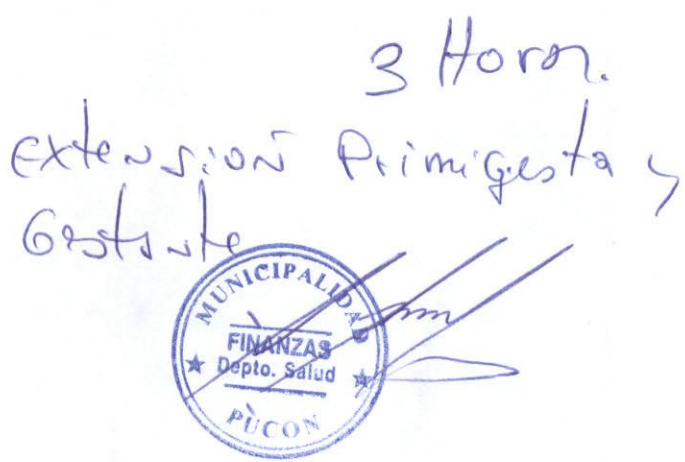 3 Horas.
Extensión Primigesta y
Gestante
MUNICIPALIDAD
FINANZAS
Depto. Salud
PUCON